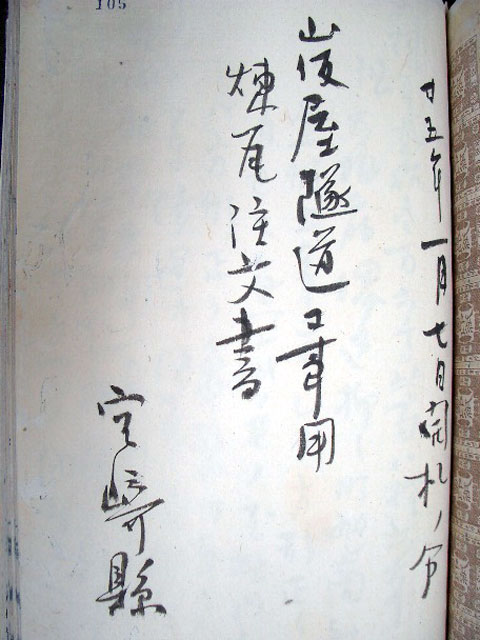 105
廿五年一月七日開札ノ分
山仮屋隧道工事用
煉瓦注文書
宮崎縣